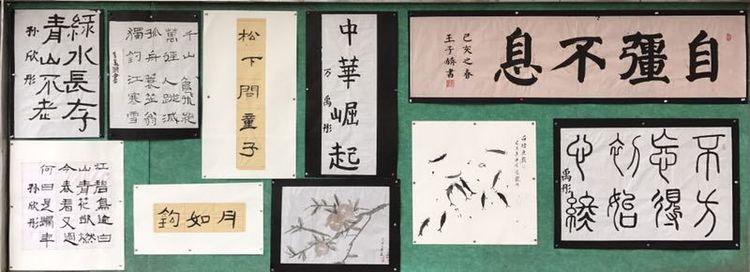 綠水長存
青山不老
孙欣彤
千山鳥飛絕
萬徑人蹤滅
孤舟蓑笠翁
獨釣江寒雪
松下問童子
中華崛起
万禹彤
自彊不息
己亥之春
王子書
江碧鳥逾白
山青花欲燃
今春看又過
何日是歸年
孙欣彤
月如鈎
不忘初心
方得始終
禹彤